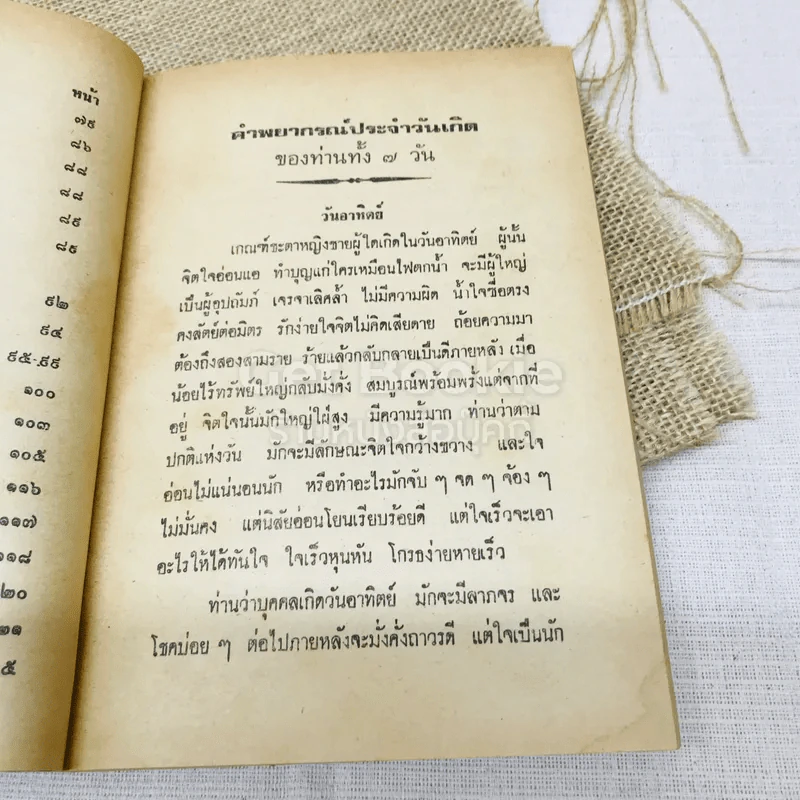 หน้า
๗๙
๘๖
๘๘
๘๘
๘๙
๘๙
๙๒
๙๔
๙๕-๙๙
๑๐๐
๑๐๓
๑๐๕
๑๑๖
๑๑๗
๑๑๘
๒๐
๒๑
๕
คำพยากรณ์ประจำวันเกิด
ของท่านทั้ง ๗ วัน
วันอาทิตย์
เกณฑ์ชะตาหญิงชายผู้ใดเกิดในวันอาทิตย์ ผู้นั้น
จิตใจอ่อนแอ ทำบุญแก่ใครเหมือนไฟตกน้ำ จะมีผู้ใหญ่
เป็นผู้อุปถัมภ์ เจรจาเลิศล้ำ ไม่มีความผิด น้ำใจซื่อตรง
คงสัตย์ต่อมิตร รักง่ายใจจิตไม่คิดเสียดาย ถ้อยความมา
ต้องถึงสองสามราย ร้ายแล้วกลับกลายเป็นดีภายหลัง เมื่อ
น้อยไร้ทรัพย์ใหญ่กลับมั่งคั่ง สมบูรณ์พร้อมพรั่งแต่จากที่
อยู่ จิตใจนั้นมักใหญ่ใฝ่สูง มีความรู้มาก ท่านว่าตาม
ปกติแห่งวัน มักจะมีลักษณะจิตใจกว้างขวาง และใจ
อ่อนไม่แน่นอนนัก หรือทำอะไรมักจับ ๆ จด ๆ จ้อง ๆ
ไม่มั่นคง แต่นิสัยอ่อนโยนเรียบร้อยดี แต่ใจเร็วจะเอา
อะไรให้ได้ทันใจ ใจเร็วหุนหัน โกรธง่ายหายเร็ว
ท่านว่าบุคคลเกิดวันอาทิตย์ มักจะมีลาภจร และ
โชคบ่อย ๆ ต่อไปภายหลังจะมั่งคั่งถาวรดี แต่ใจเป็นนัก
Get Bookie